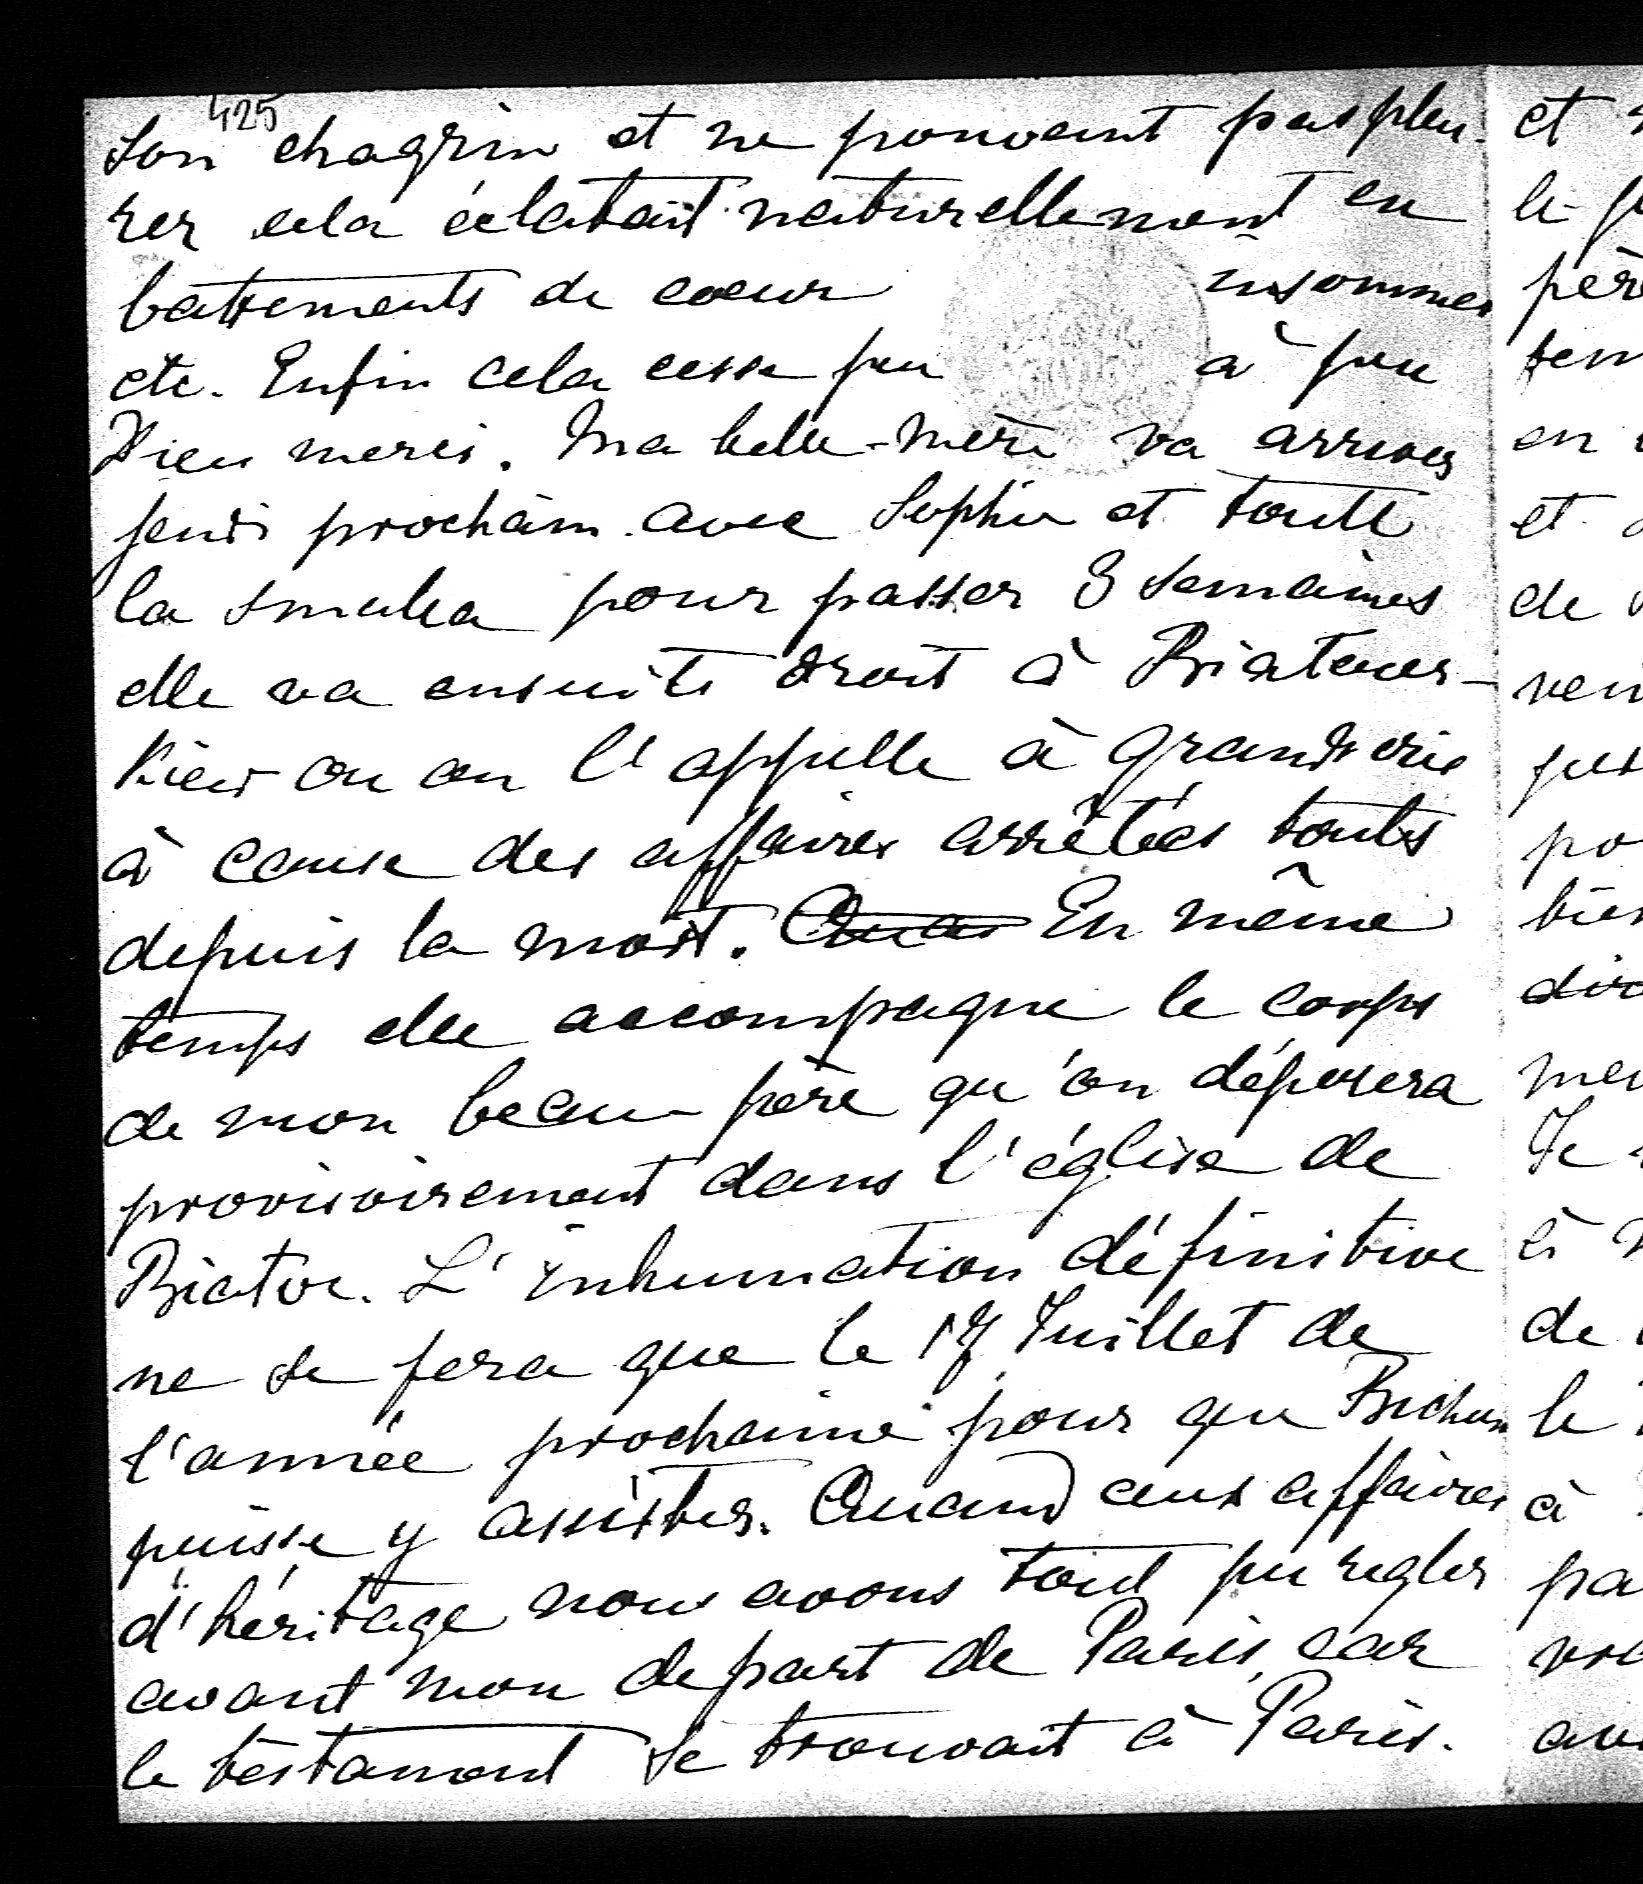 425
son chagrin et ne pouvant pas pleu-
rer cela éclatait naturellement en
battements de coeur insomnies
etc. Enfin cela cesse peu à peu
Dieu merci. Ma belle-mère va arriver
jeudi prochain avec Sophie et toute
la smala pour passer 3 semaines
elle va ensuite droit à Biatcer-
kiew ou on l'appelle à grands cris
à cause des affaires arrêtées toutes
depuis la mort. En même
temps elle accompagne le corps
de mon beau-père qu'on déposera
provisoirement dans l'église de
Biatce. L'inhumation définitive
ne se fera que le 17 Juillet de
l'année prochaine pour que Bichun
puisse y assister. Quand aux affaires
d'héritage nous avons tout pu regler
avant mon depart de Paris, car
le testament se trouvait à Paris.